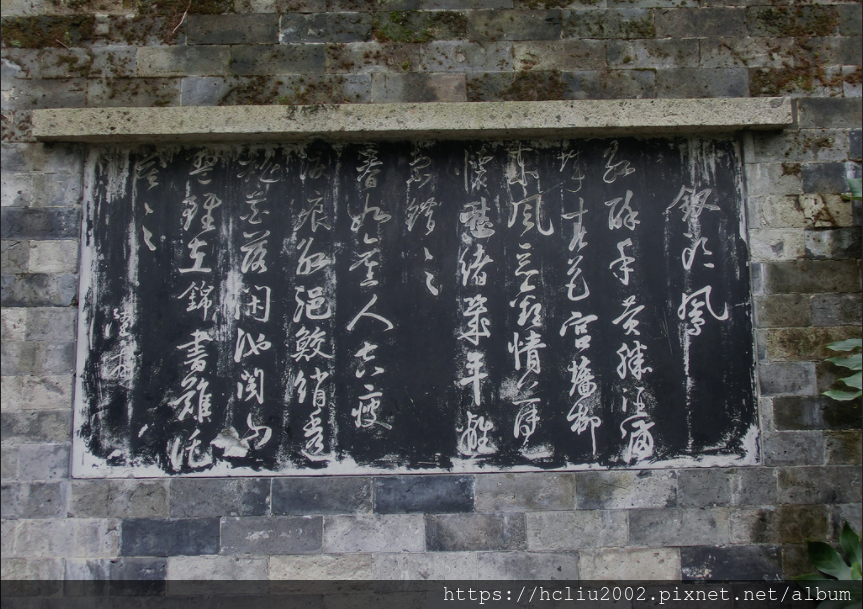 釵頭鳳
紅酥手黃縢酒滿
城春色宮墻柳
東風惡歡情薄一
懷愁緒幾年離
索錯々々
春如舊人空瘦
淚痕紅浥鮫綃透
桃花落閑池閣山
盟雖在錦書難託
莫々々
陸游
https://hcliu2002.pixnet.net/album